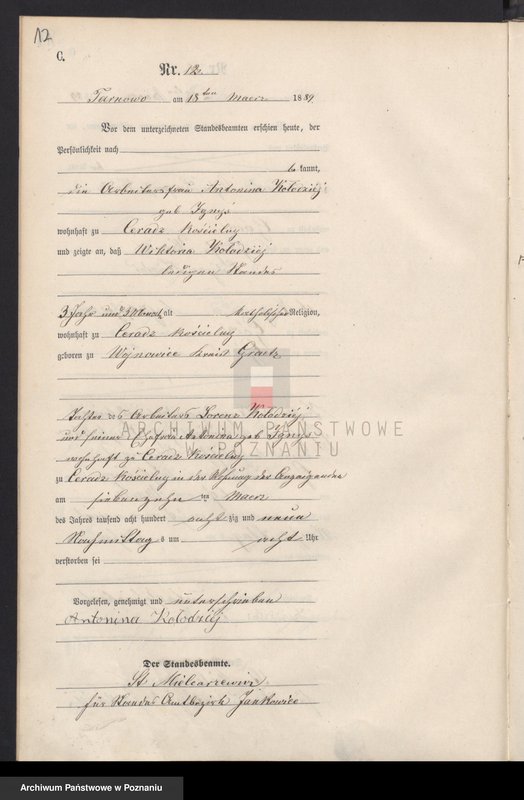 12
C.
Nr. 12.
Tarnowo am 18ten Maerz 1889.
Vor dem unterzeichneten Standesbeamten erschien heute, der
Persönlichkeit nach
bekannt,
die Arbeitersfrau Antonina Kołodziej
geb Ignys
wohnhaft zu Ceradz Kościelny
und zeigte an, daß Wiktoria Kołodziej
ledigen Standes
3 Jahr und 3 Monat alt katholischer Religion,
wohnhaft zu Ceradz Kościelny
geboren zu Wojnowice Kreis Graetz
Tochter des Arbeiters Lorenz Kołodziej
und seiner Ehefrau Antonina geb Ignys
wohnhaft zu Ceradz Kościelny
zu Ceradz Kościelny in der Wohnung der Anzeigenden
am siebenzehn ten Maerz
des Jahres tausend acht hundert acht zig und neun
Nachmittags um acht Uhr
verstorben sei
Vorgelesen, genehmigt und unterschrieben
Antonina Kołodziej
Der Standesbeamte.
St Mielcarzewicz
für Standes Amtbezirk Jankowice
ARCHIWUM PAŃSTWOWE
W POZNANIU
Archiwum Państwowe w Poznaniu